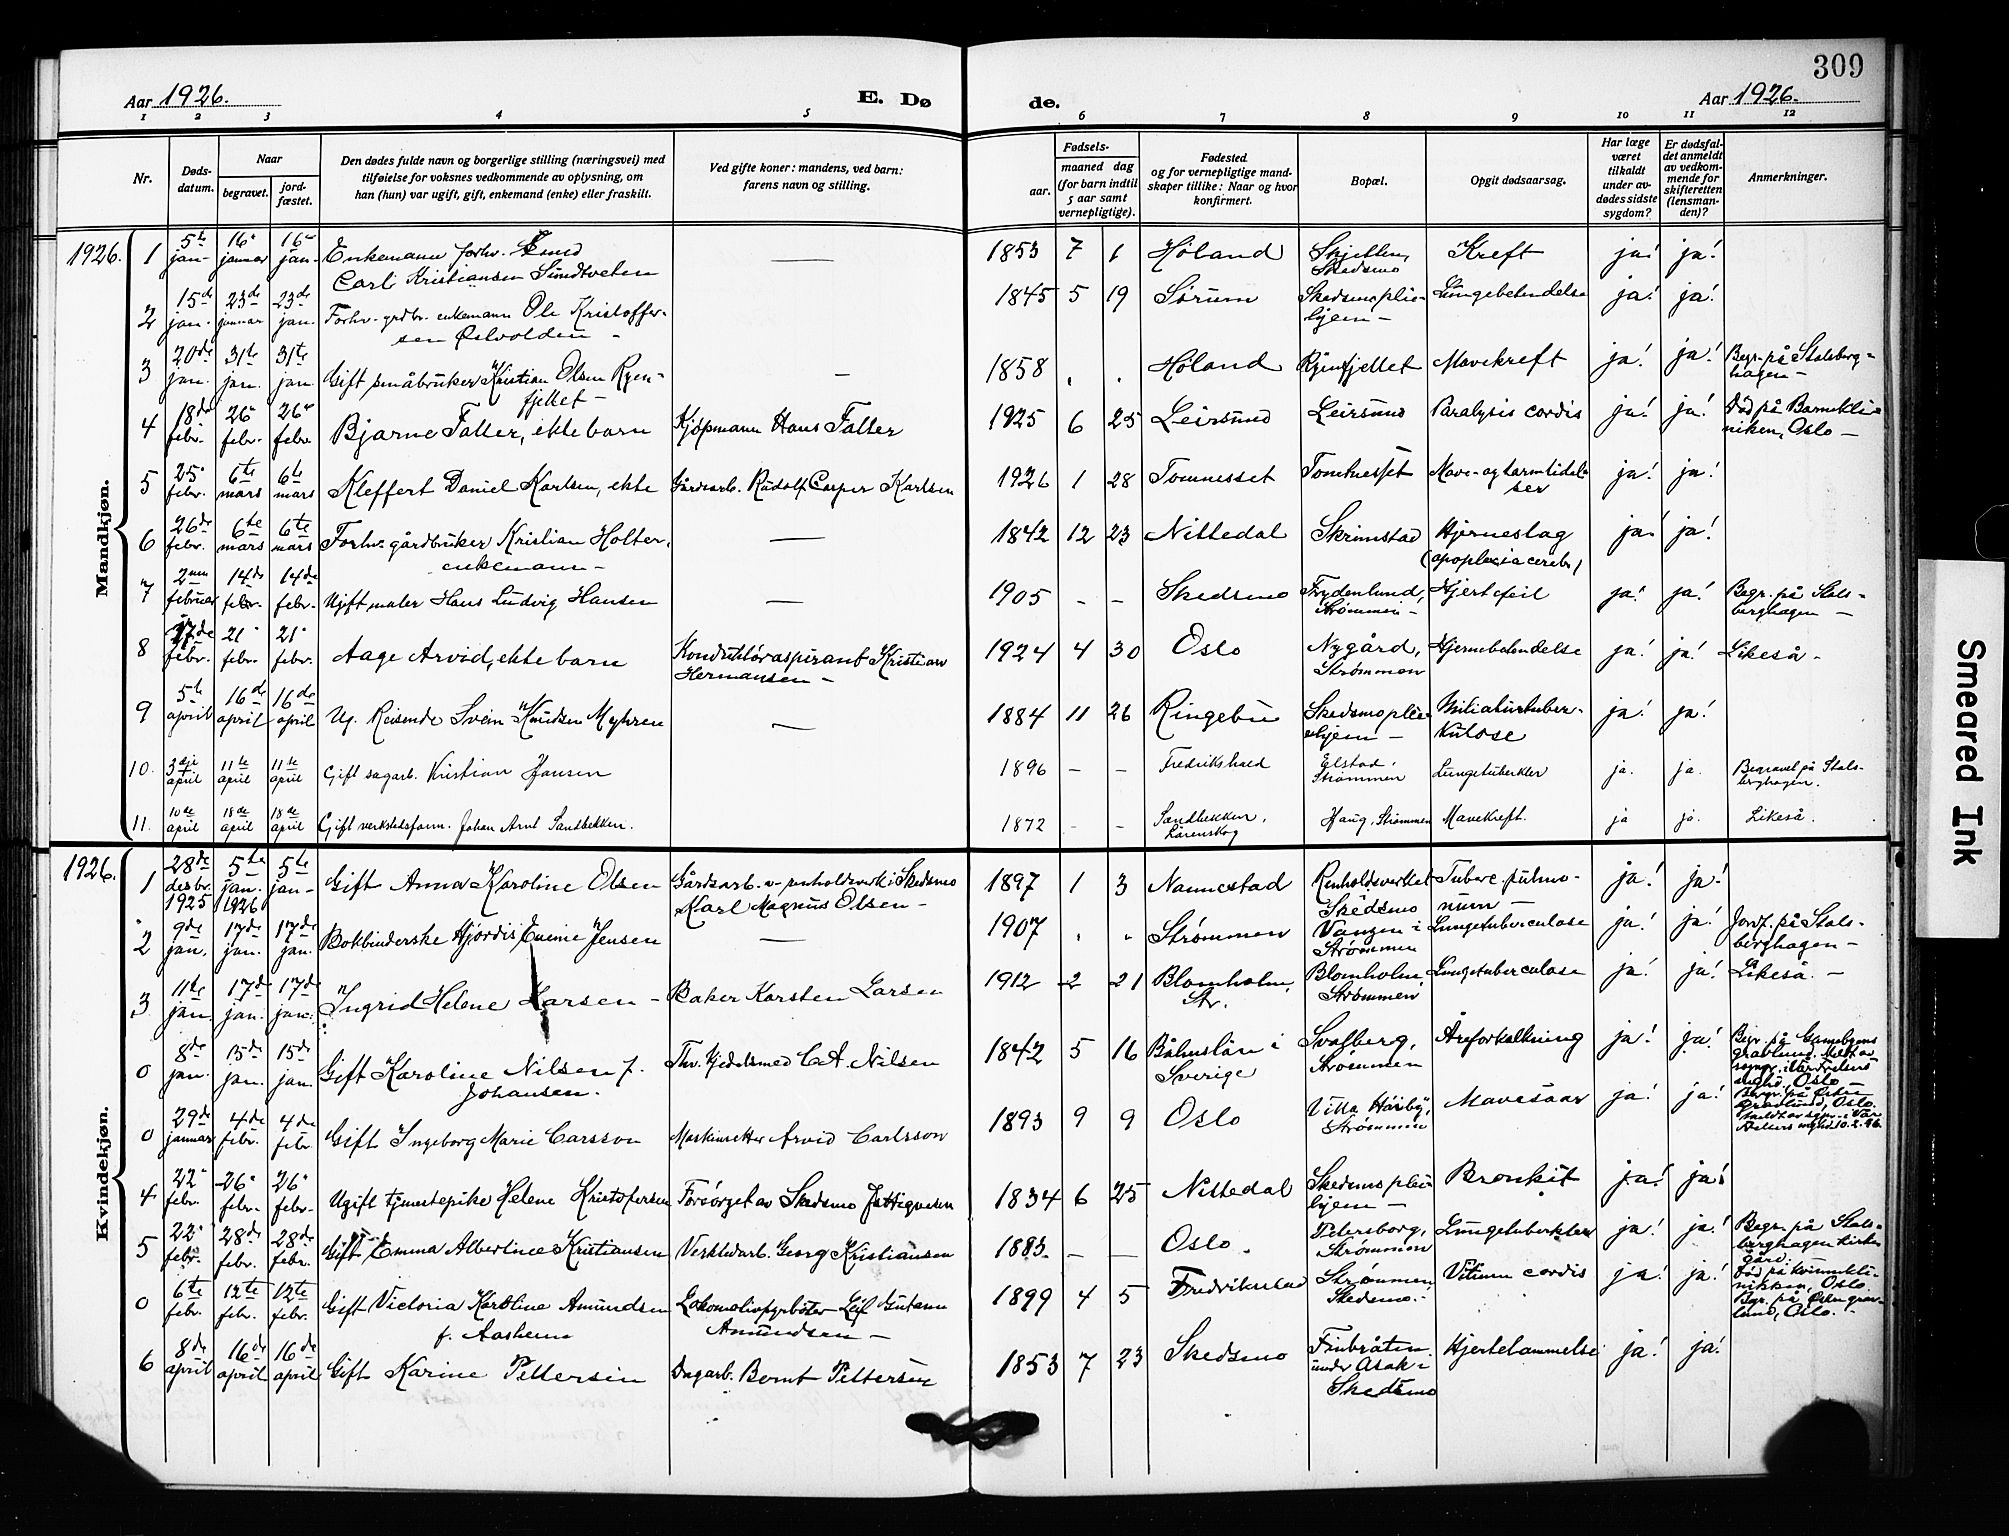 309
Aar 1926.
E. Dø
de.
Aar 1926.
1 2 3 4 5 6 7 8 9 10 11 12
Nr.
Døds-
datum.
Naar
begravet.
jord-
fæstet.
Den dødes fulde navn og borgerlige stilling (næringsvei) med
tilføielse for voksnes vedkommende av oplysning, om
han (hun) var ugift, gift, enkemand (enke) eller fraskilt.
Ved gifte koner: mandens, ved barn:
farens navn og stilling.
Fødsels-
aar.
maaned dag
(for barn indtil
5 aar samt
vernepligtige).
Fødested
og for vernepligtige mand-
skaper tillike: Naar og hvor
konfirmert.
Bopæl.
Opgit dødsaarsag.
Har læge
været
tilkaldt
under av-
dødes sidste
sygdom?
Er dødsfal-
det anmeldt
av vedkom-
mende for
skifteretten
(lensman-
den)?
Anmerkninger.
Mandkjøn.
1926. 1 5te jan- 16. januar 16. jan- Enkemann forhv.
Carl Kristiansen Sundtveten — 1853 7 1 Høland Skjetten, Skedsmo Kreft ja! ja!
2 15de jan. 23de januar 23de jan. Forhv. grdbr. enkemann Ole Kristoffer-
sen Ødvolden — — 1845 5 19 Sørum Skedsmo pleie-
hjem — Lungebetendelse ja! ja!
3 20de jan. 31te jan. 31te jan. Gift småbruker Kristian Olsen Ryen-
fjellet — — 1858 . . Høland Ryenfjellet Mavekreft ja! ja! Begr. på Stalsberg-
hagen —
4 18de febr. 26. febr. 26. febr. Bjarne Falter, ekte barn Kjøpmann Hans Falter 1925 6 25 Leirsund Leirsund Paralysis cordis ja! ja! Død på Barnekli-
niken, Oslo —
5 25. febr. 6te mars 6te mars Kleffert Daniel Karlsen, ekte Gårdsarb. Rudolf Casper Karlsen 1926 1 28 Tomnesset Tomtnesset Mave- og tarmlidel-
ser ja! ja!
6 26de febr. 6te mars 6te mars Forhv. gårdbruker Kristian Holter,
enkemann — — 1842 12 23 Nittedal Skrimstad Hjerneslag
(apoplexia cerebr.) ja! ja!
7 2nen februar 14de febr. 14de febr. Ugift maler Hans Ludvig Hansen — 1905 - - Skedsmo Frydenlund, Strømmen — Hjertefeil ja! ja! Begr. på Stals-
berghagen —
8 17de febr. 21. febr. 21. febr. Aage Arvid, ekte barn Konduktøraspirant Kristian
Hermansen — 1924 4 30 Oslo Nygård, Strømmen Hjernebetendelse ja! ja! Likeså -
9 5te april 16de april 16de april Ug. Reisende Svein Knudsen Myhren — 1884 11 26 Ringebu Skedsmo pleie-
hjem — Miliaturtuber-
kulose ja! ja!
10. 3dje april 11te april 11te april Gift sagarb. Kristian Hansen 1896 - - Fredrikshald Elstad, Strømmen Lungetuberkler ja. ja. Begravet på Stals-
berghagen.
11. 10de april 18de april 18de april Gift verkstedsform. Johan Arnt Sandbekken. 1872 - - Sandbekken, Rørenskog Haug, Strømmen Mavekreft. ja ja. Likeså.
Kvindekjøn.
1926. 1 28de desbr. 1925 5te jan. 1926 5te jan- Gift Anna Karoline Olsen Gårdsarb. v. renholdsverk i Skedsmo
Karl Magnus Olsen — 1897 1 3 Nannestad Renholdsverket Skedsmo Tuberc. pulmo-
num — ja! ja!
2 9de jan. 17de jan. 17de jan. Bokbinderske Hjørdis Jensen — 1907 . . Strømmen Vangen i Strømmen Lungetuberculose ja! ja! Jordf. på Stals-
berghagen —
3 11te jan. 17de jan. 17de jan. Ingrid Helene Larsen — Baker Karsten Larsen 1912 2 21 Blomholm, Str. Blomholm, Strømmen Lungetuberculose ja! ja! Likeså. —
0 8de jan. 15de jan. 15de jan. Gift Karoline Nilsen f.
Johansen. Fhv. kjedelsmed C. A. Nilsen 1842 5 16 Båhuslän i Sverige Svalberg, Strømmen Åreforkalkning ja! ja! Begr. på Gamlebyens
gravlund. Meldt av
Oslo
0 29de januar 4de febr. 4de febr Gift Ingeborg Marie Carsson Maskinsetter Arvid Carlsson 1893 9 9 Oslo Villa Håiby, Strømmen Mavesaar ja! ja! Begr. på Østre
gravlund, Oslo.
meldt av sogn. i Vår
Frelsers mghd. 10.2.26.
4 22. febr. 26. febr. 26. febr. Ugift tjenestepike Helene Kristofersen Forsørget av Skedsmo Fattigvesen 1834 6 25 Nittedal Skedsmo pleie-
hjem — Bronkit ja! ja!
5 22. febr. 28de febr. 28de febr. Gift Emma Albertine Kristiansen Verkstedarb. Georg Kristiansen 1883 — — Oslo. Petersborg, Strømmen Lungetuberkler ja! ja! Begr. på Stals-
berghagen kirke-
gård.
0 6te febr. 12te febr. 12te febr. Gift Victoria Karoline Amundsen
f. Aasheim Lokomotivfyrbøter Leif Gutann
Amundsen — 1899 4 5 Fredrikstad Strømmen Skedsmo. Vitium cordis ja! ja! Død på kvinnekli-
nikken, Oslo
Bgr. på Østre grav-
lund, Oslo. —
6 8de april 16de april 16de april Gift Karine Pettersen Dagarb. Bernt Pettersen 1853 7 23 Skedsmo Finbråten under Asak i Skedsmo Hjertelammelse ja! ja!
Smeared Ink